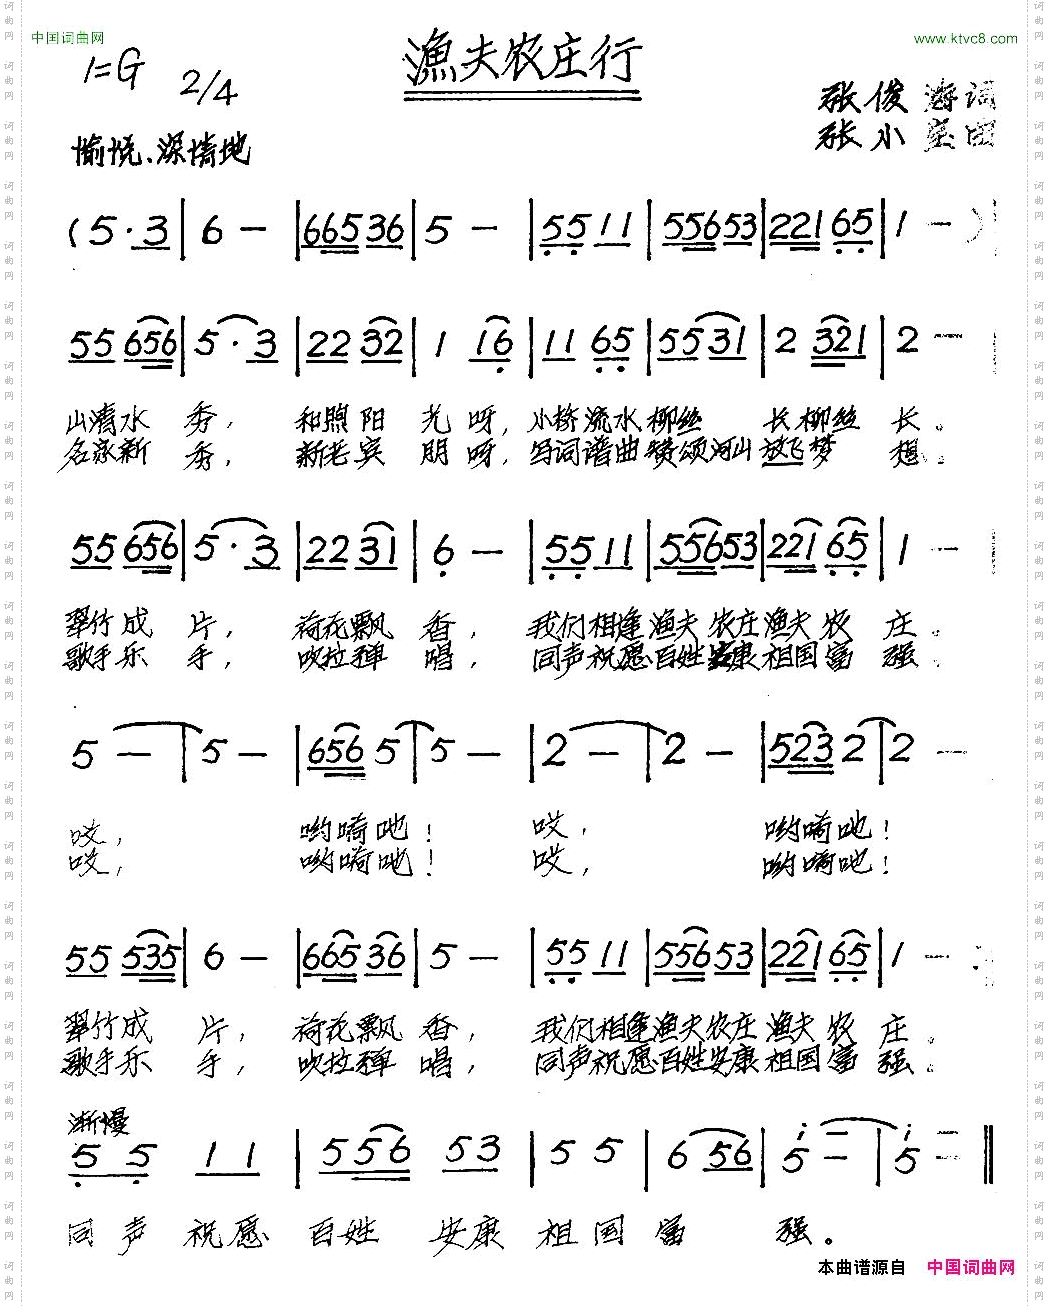 中国词曲网
www.ktvc8.com
漁夫农庄行
1=G 2/4
张俊 词
张小 曲
愉悦、深情地
(5·3|6 -|66536|5 -|5511|55653|22165|1 -)
55656|5·3|2232|1 16|1165|5531|2 321|2 -
山清水秀，和煦阳光呀，小桥流水柳丝长柳丝长。
名家新秀，新老宾朋呀，写词谱曲赞颂河山放飞梦想。
55656|5·3|2231|6 -|5511|55653|22165|1 -
翠竹成片，荷花飘香，我们相逢渔夫农庄渔夫农庄。
歌手乐手，吹拉弹唱，同声祝愿百姓安康祖国富强。
5 -|5 -|656 5|5 -|2 -|2 -|523 2|2 -
哎，哟嗬吔！哎，哟嗬吔！
哎，哟嗬吔！哎，哟嗬吔！
55535|6 -|66536|5 -|5511|55653|22165|1 -
翠竹成片，荷花飘香，我们相逢渔夫农庄渔夫农庄。
歌手乐手，吹拉弹唱，同声祝愿百姓安康祖国富强。
渐慢
5 5 1 1|5 56 53|5 5|6 56|i 5 -|i 5 -‖
同声祝愿百姓安康祖国富强。
本曲谱源自 中国词曲网